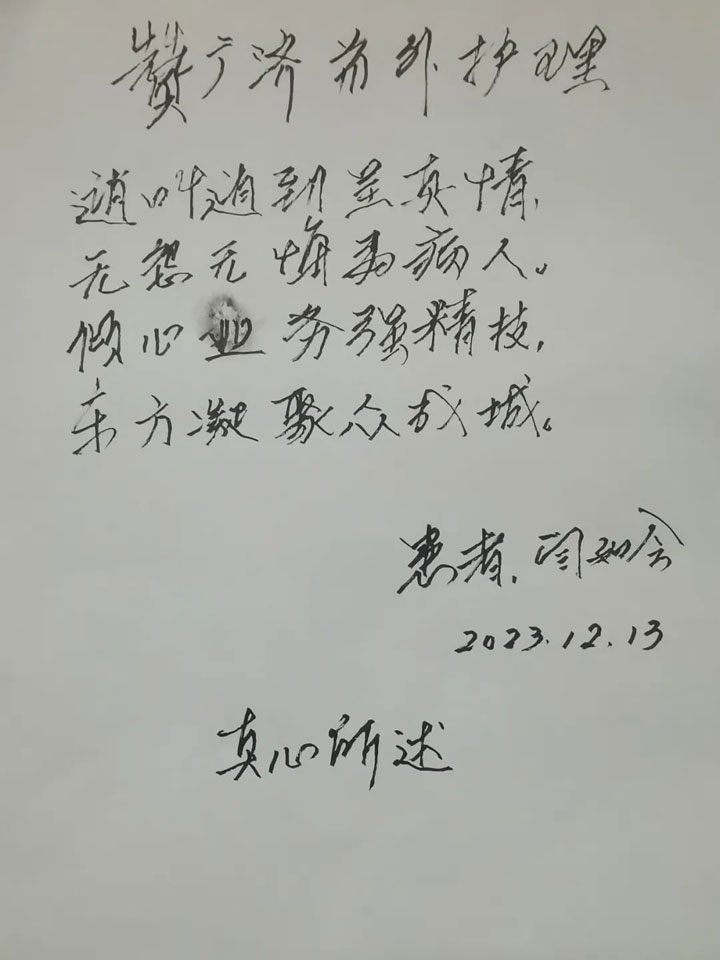 赞广济普外护理
随叫随到是真情,
无怨无悔为病人。
倾心业务强精技,
东方凝聚众成城。
患者,闫如会
2023.12.13
真心所述